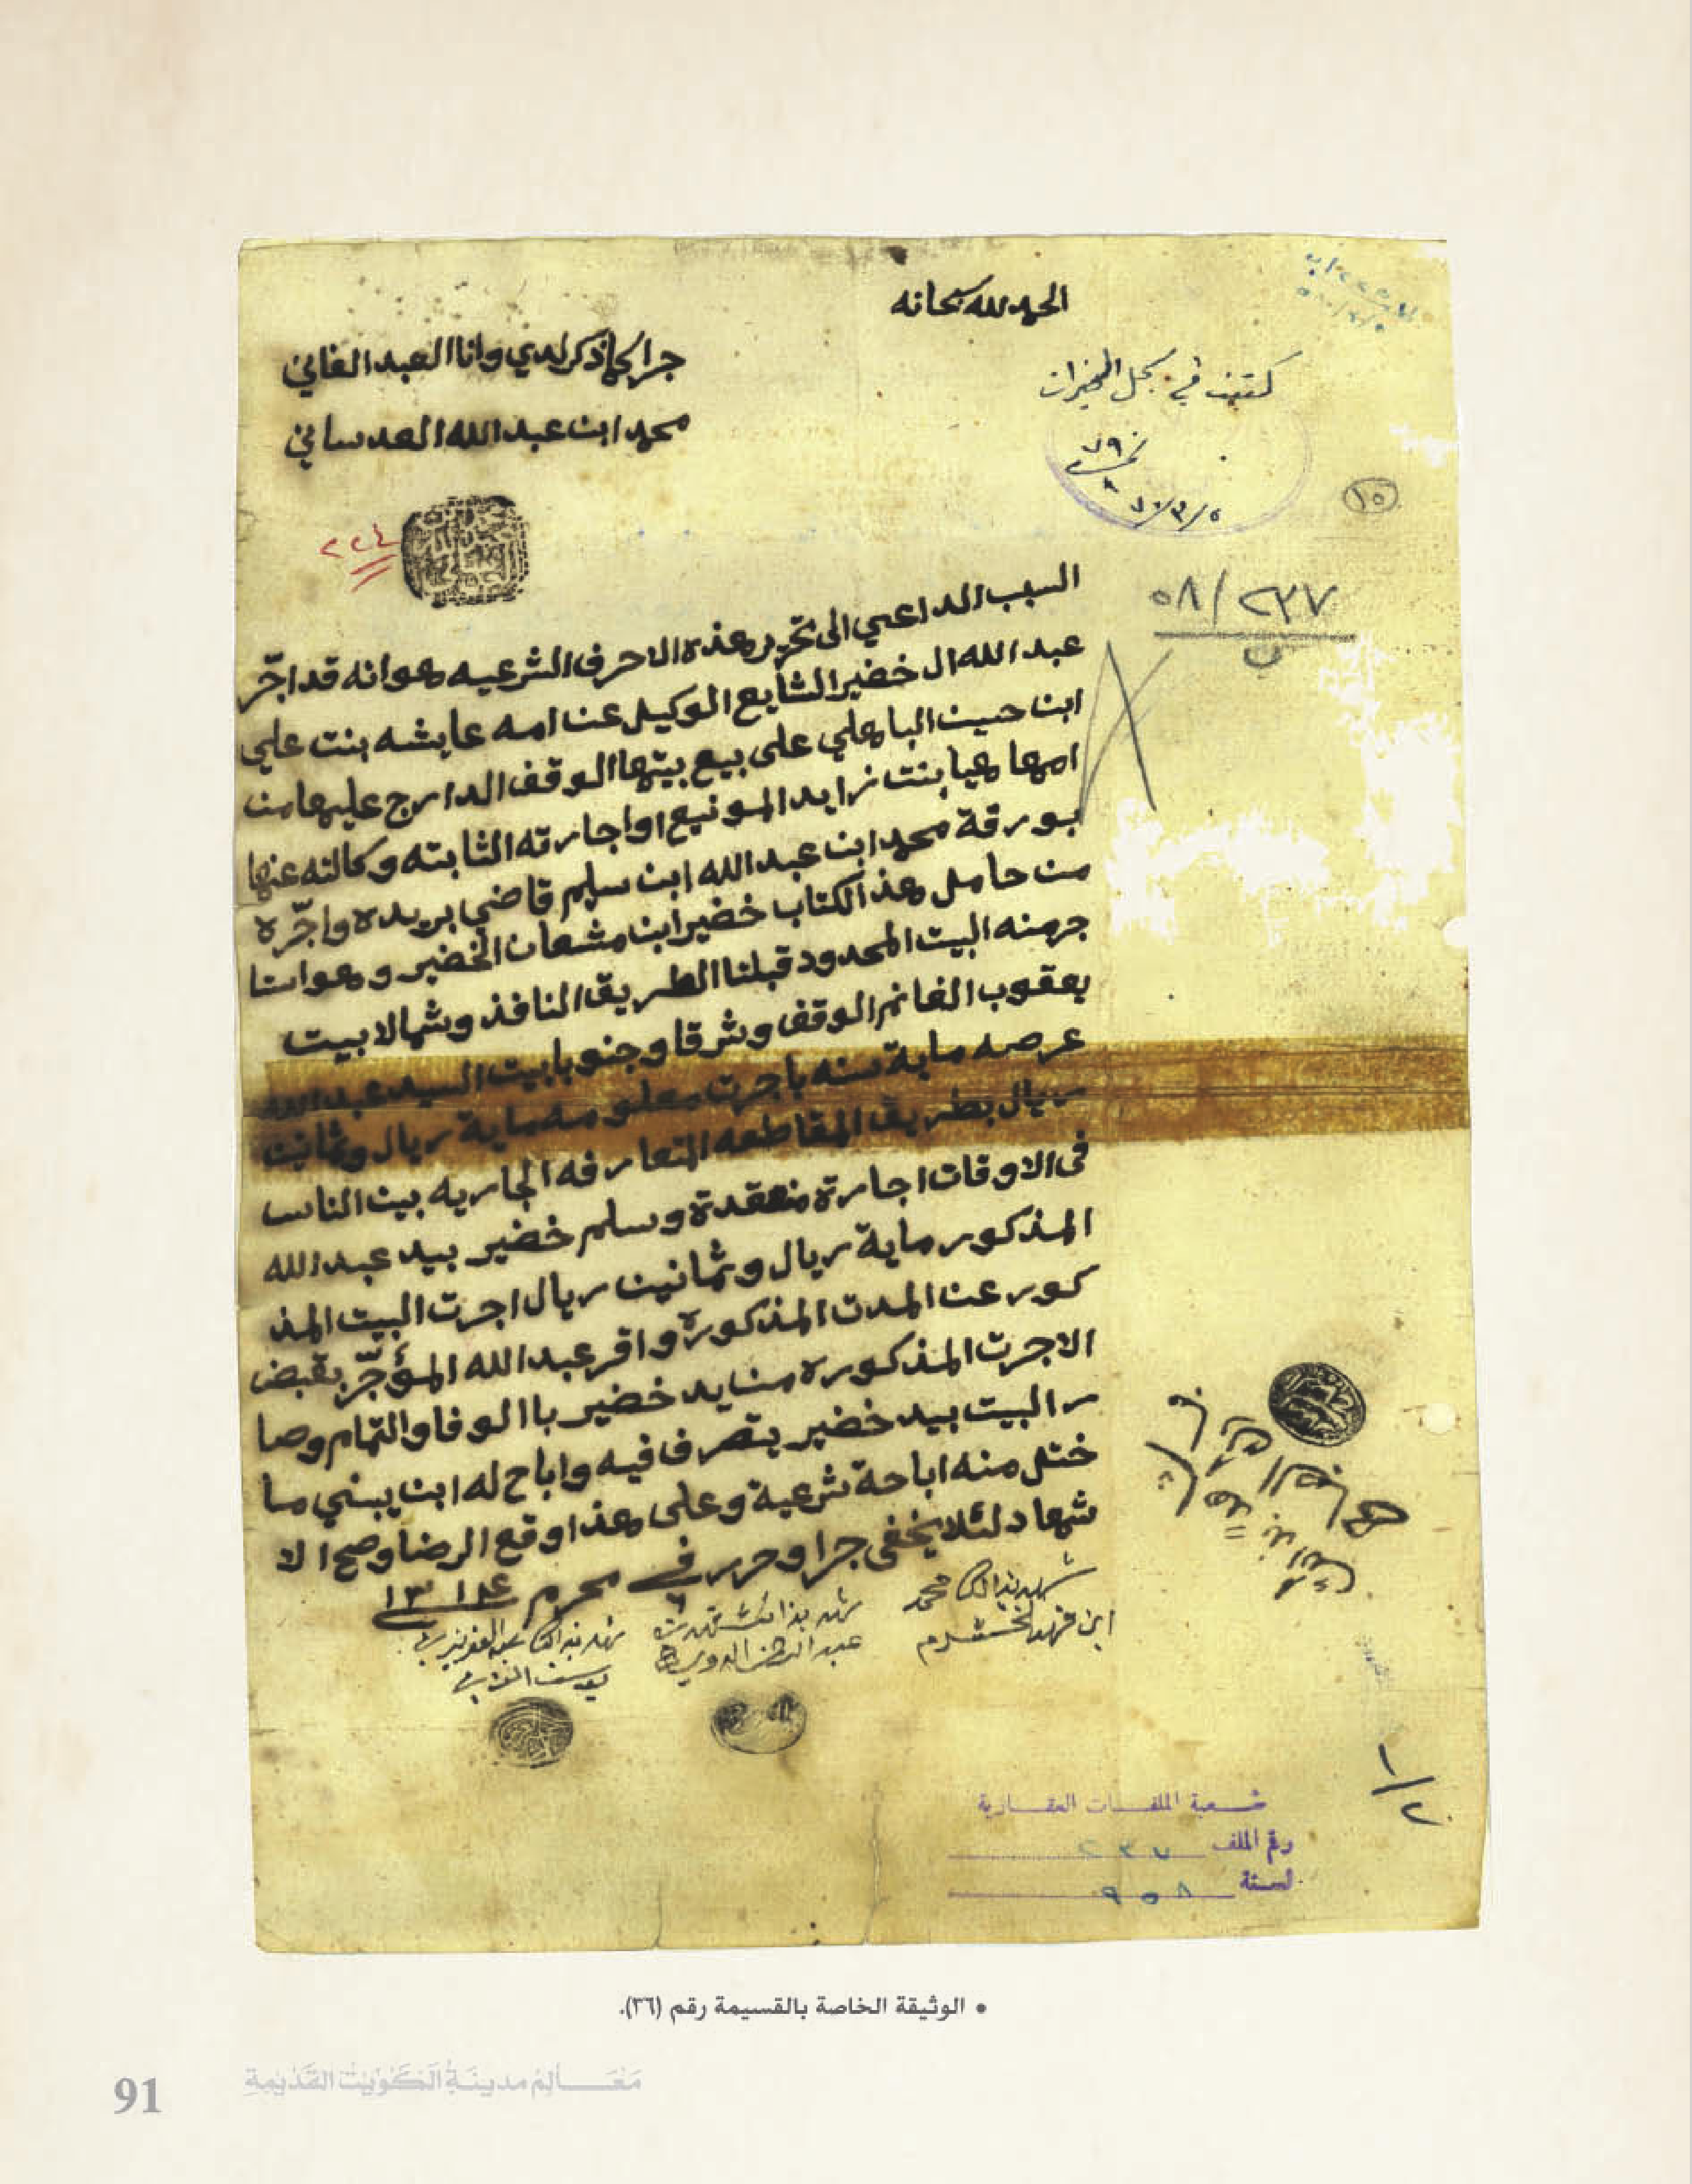 الحمد لله سبحانه
جرا كما ذكر لدي وانا العبد الفاني
محمد ابن عبد الله العدساني
٢٢٤
١٥
٥٨/٢٣٧
السبب الداعي الى تحرير هذه الاحرف الشرعيه هو انه قد اجّر
عبد الله ال خضير الشايع الوكيل عن امه عايشه بنت علي
ابن حسين الباهلي على بيع بيتها الوقف الدارج عليها من
امها هيا بنت زايد المونيع او اجارته الثابته وكالته عنها
بورقة محمد ابن عبد الله ابن سليم قاضي ابريده واجّره
من حامل هذ الكتاب خضير ابن مشعان الخضير وهو استا
جر منه البيت المحدود قبلتا الطريق النافذ وشمالا بيت
يعقوب الغانم الوقف وشرقا وجنوبا بيت السيد عبد الله
عرصه ماية سنه باجرت معلومه ماية ريال وثمانين
ريال بطريق المقاطعه المتعارفه الجاريه بين الناس
فى الاوقات اجارة منعقدة وسلم خضير بيد عبد الله
المذكور ماية ريال وثمانين ريال اجرت البيت المذ
كور عن المدت المذكورة واقر عبد الله المؤجّر بقبض
الاجرت المذكوره من يد خضير باالوفا والتمام وصا
ر البيت بيد خضير يتصرف فيه واباح له ابن يبني ما
ختل منه اباحة شرعية وعلى هذا وقع الرضا وصح الا
شهاد لئلا يخفى جرا وحرر في ٦ محرم ١٣١٤
شهد بذالك محمد
شهد بذالك
عبد الرحمن الدويري
شهد بذالك عبد العزيز بن
يوسف
١/٢
شعبة الملفات العقارية
رقم الملف ٢٣٧
لسنة ٩٥٨
• الوثيقة الخاصة بالقسيمة رقم (٣٦).
مَعَالِمُ مدينَةِ الكُوَيْت القَدْيمةِ
91